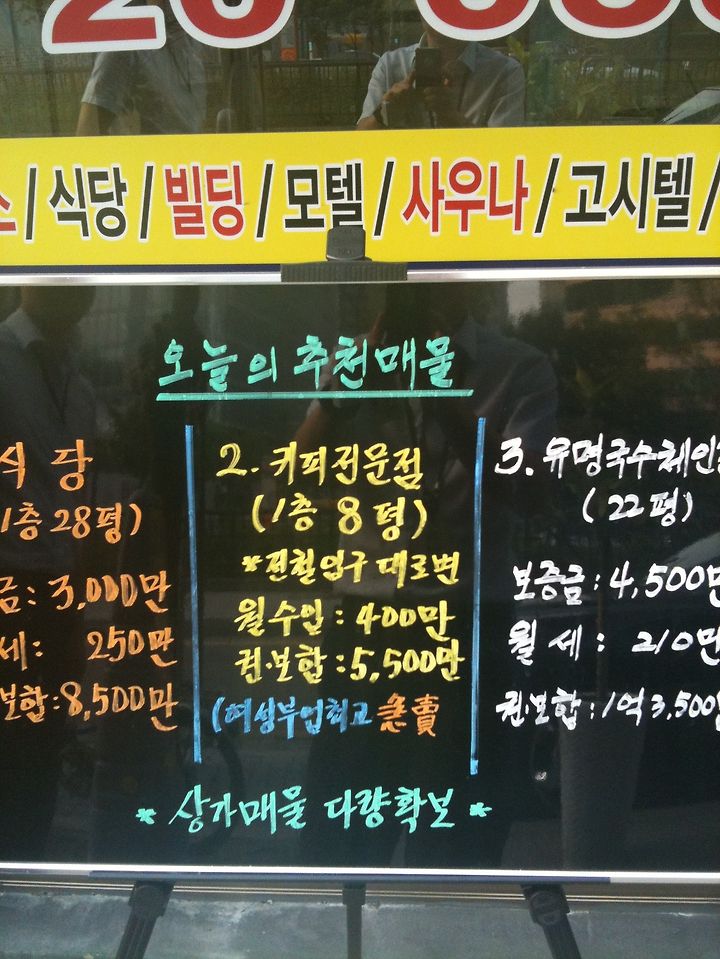 스/식당/빌딩/모텔/사우나/고시텔/
오늘의 추천매물
식당
1층 28평)
금: 3,000만
세: 250만
보합:8,500만
2. 커피전문점
(1층 8평)
*전철입구 대로변
월수입 : 400만
권.보합 :5,500만
(여성부업최고 急賣
3. 유명국수체인
(22평)
보증금 : 4,500만
월세 : 210만
권.보합 : 1억3,500만
* 상가매물 다량확보 *